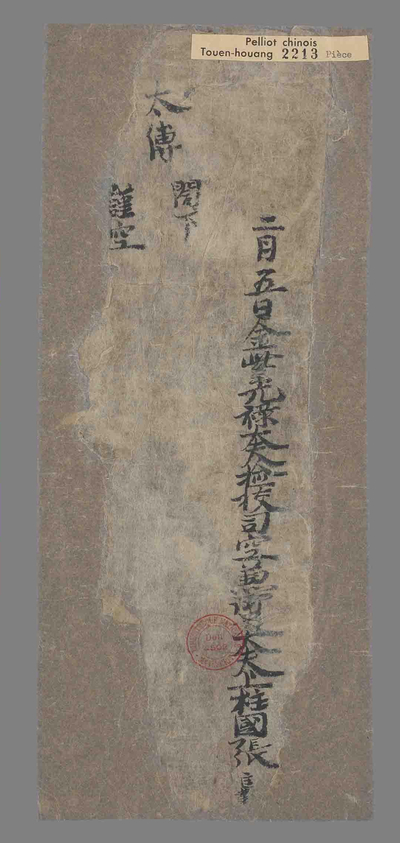 Pelliot chinois
Touen-houang 2213 Pièce
二月五日金紫光祿大夫檢校司空兼御史大夫上柱國張
太傅
閣下
謹空